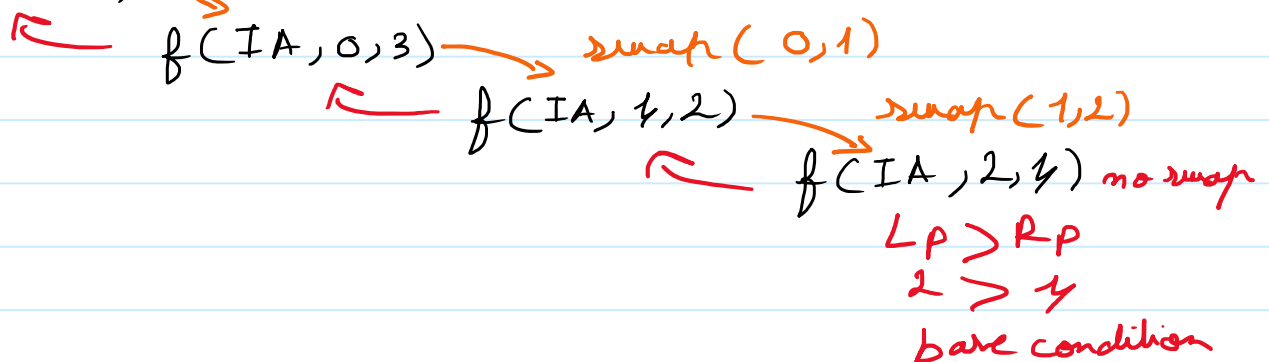 f(IA,0,3) swap(0,1)
f(IA,1,2) swap(1,2)
f(IA,2,1) no swap
Lp > Rp
2 > 1
base condition